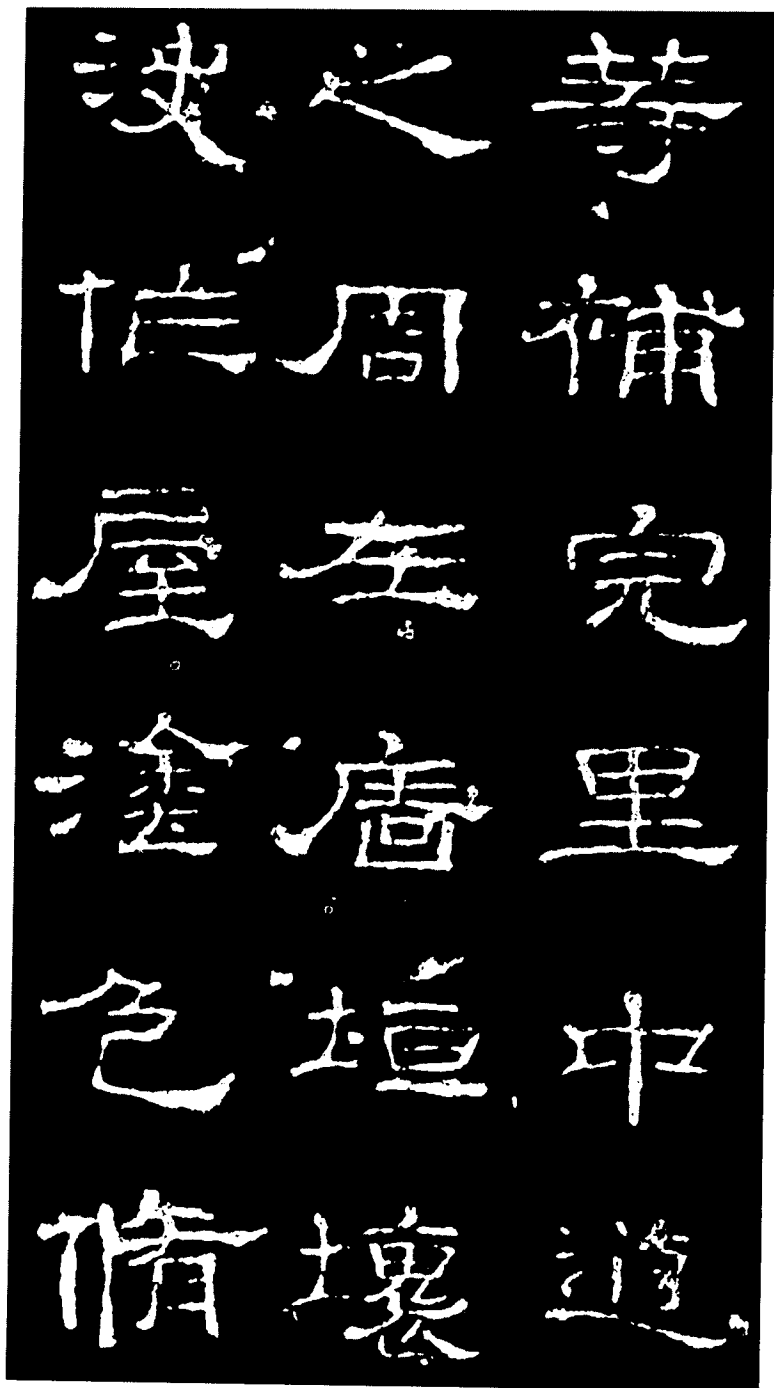 等補完里中道
之周左廧垣壞
決作屋塗色脩